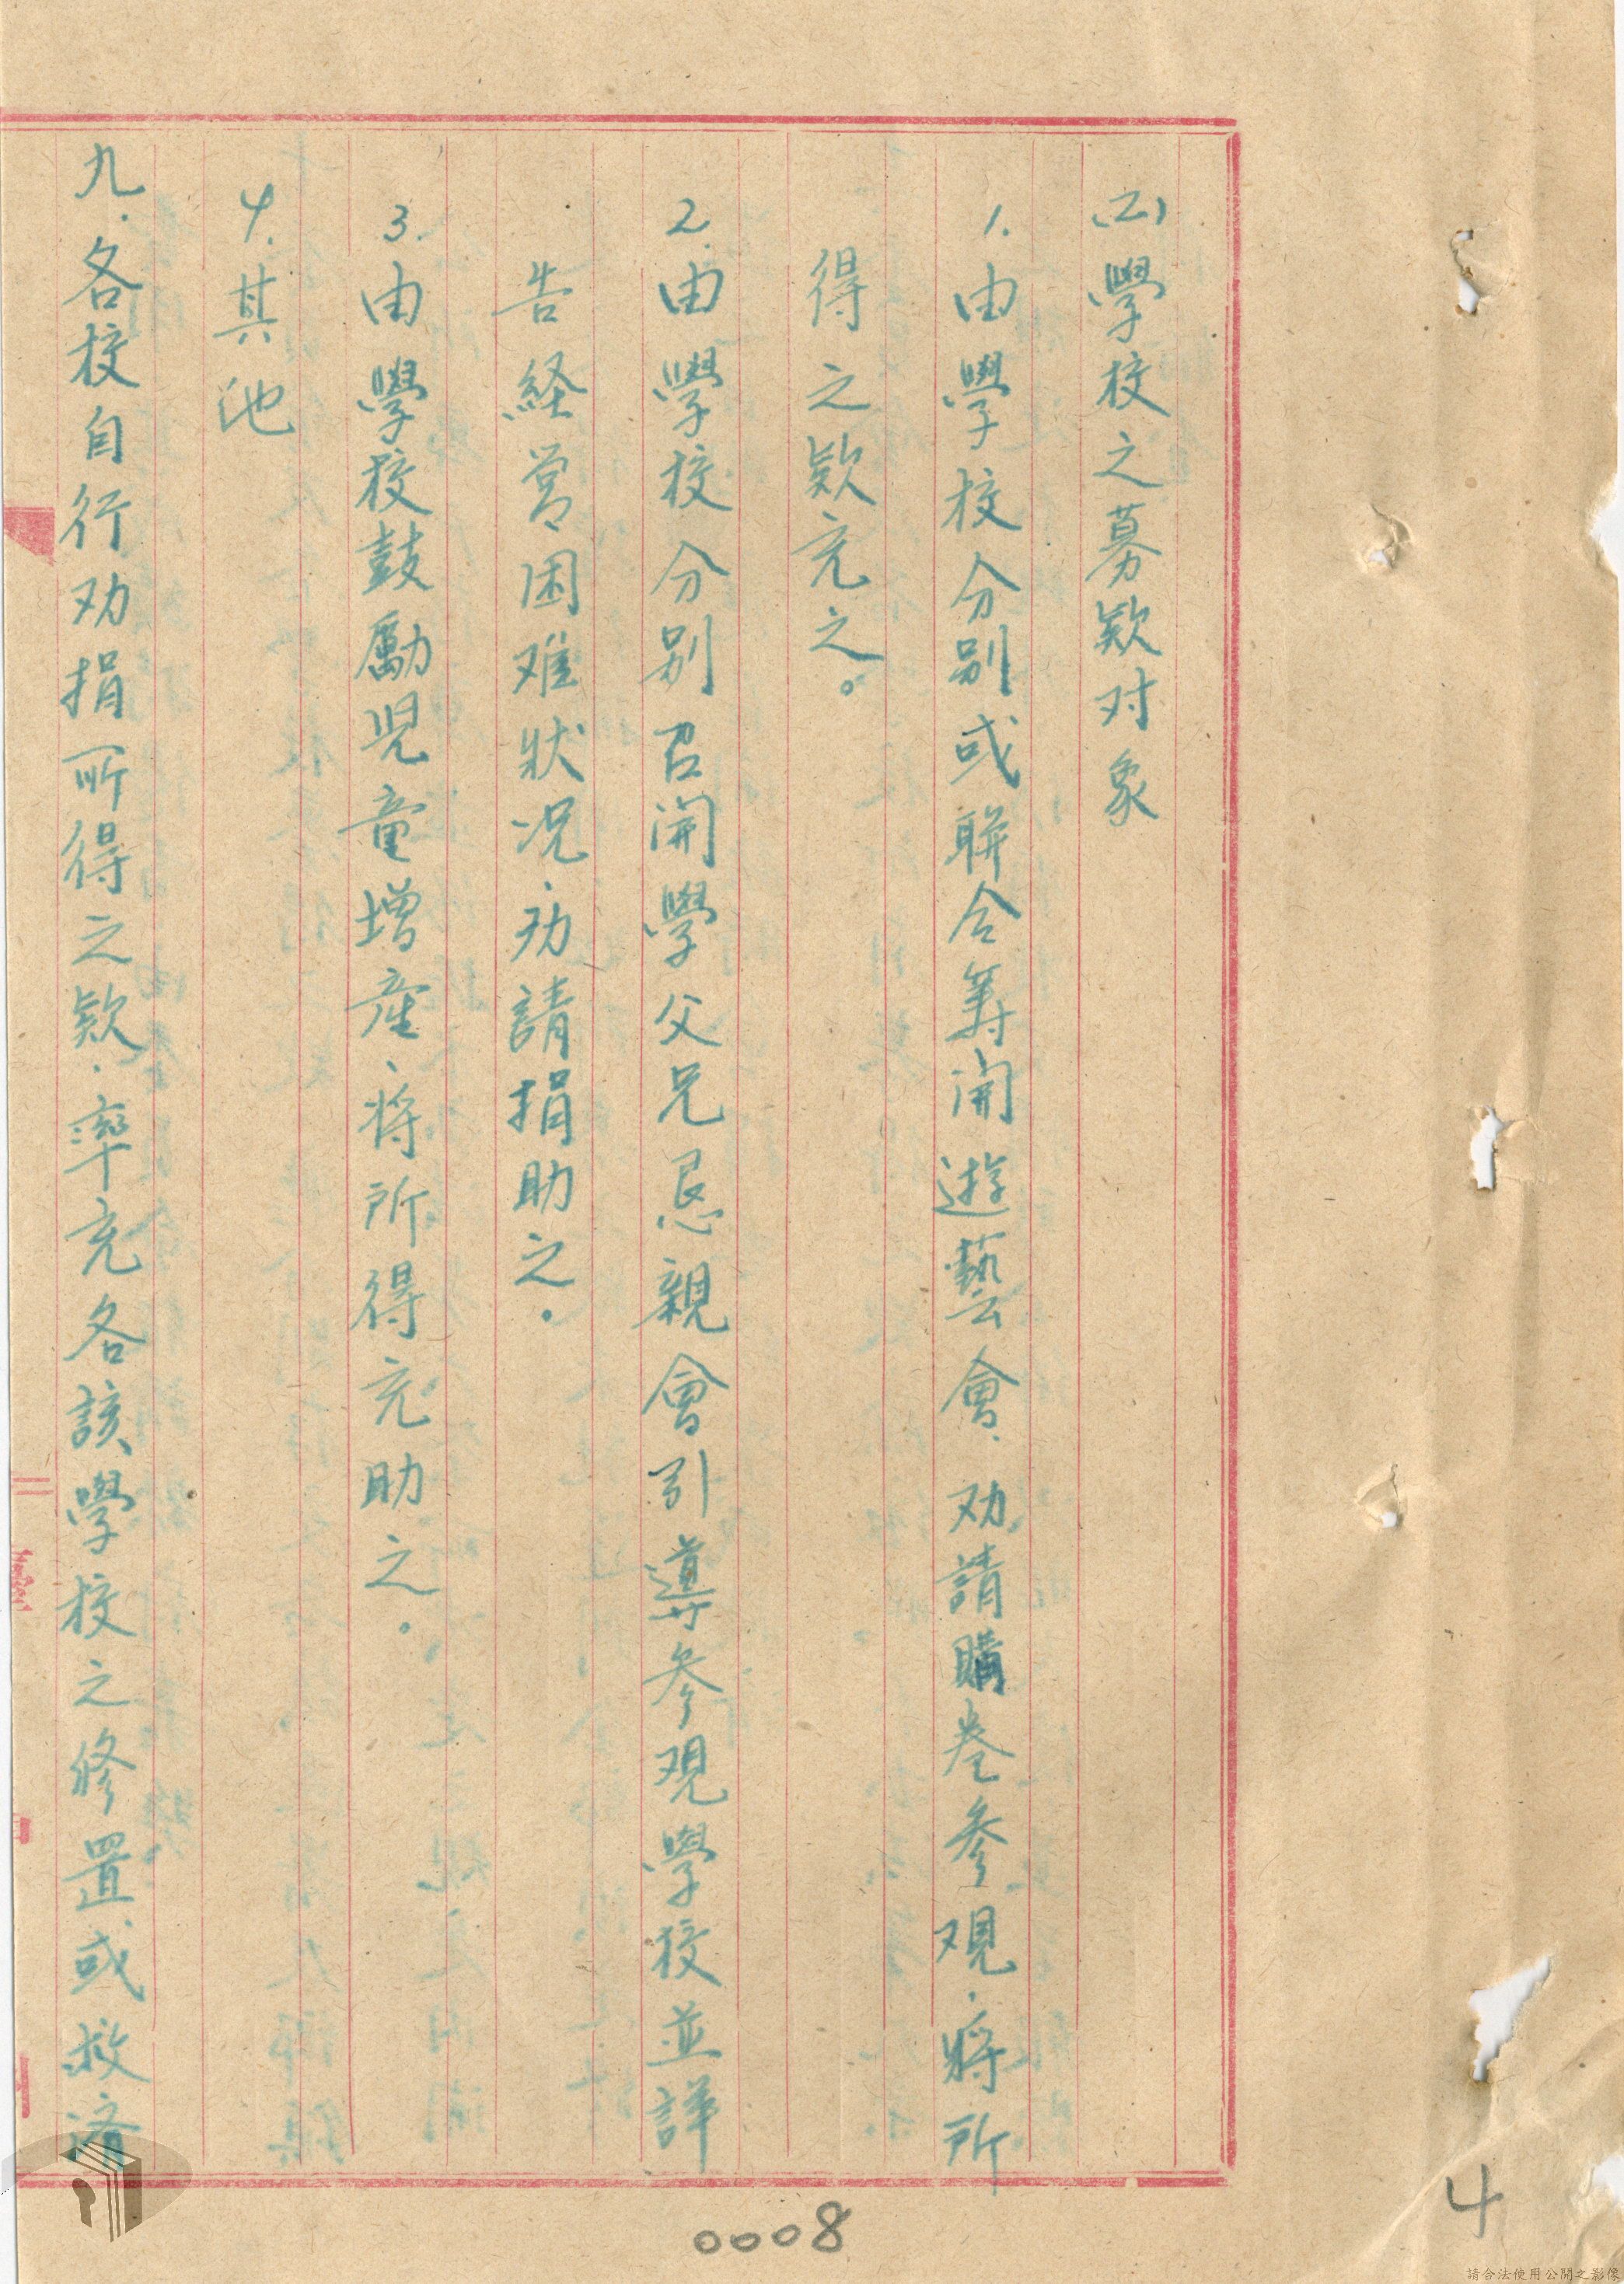 (二)學校之募欵对象
1.由學校分别或聯合筹開遊藝會、劝請購卷參观、將所
得之欵充之。
2.由學校分别召開學父兄恳親會引導参观學校並詳
告経营困难狀况、劝請捐助之。
3.由學校鼓勵児童增產、將所得充助之。
4.其他
九.各校自行劝捐所得之欵、率充各該學校之修置或救濟
0008
4
請合法使用公開之影像